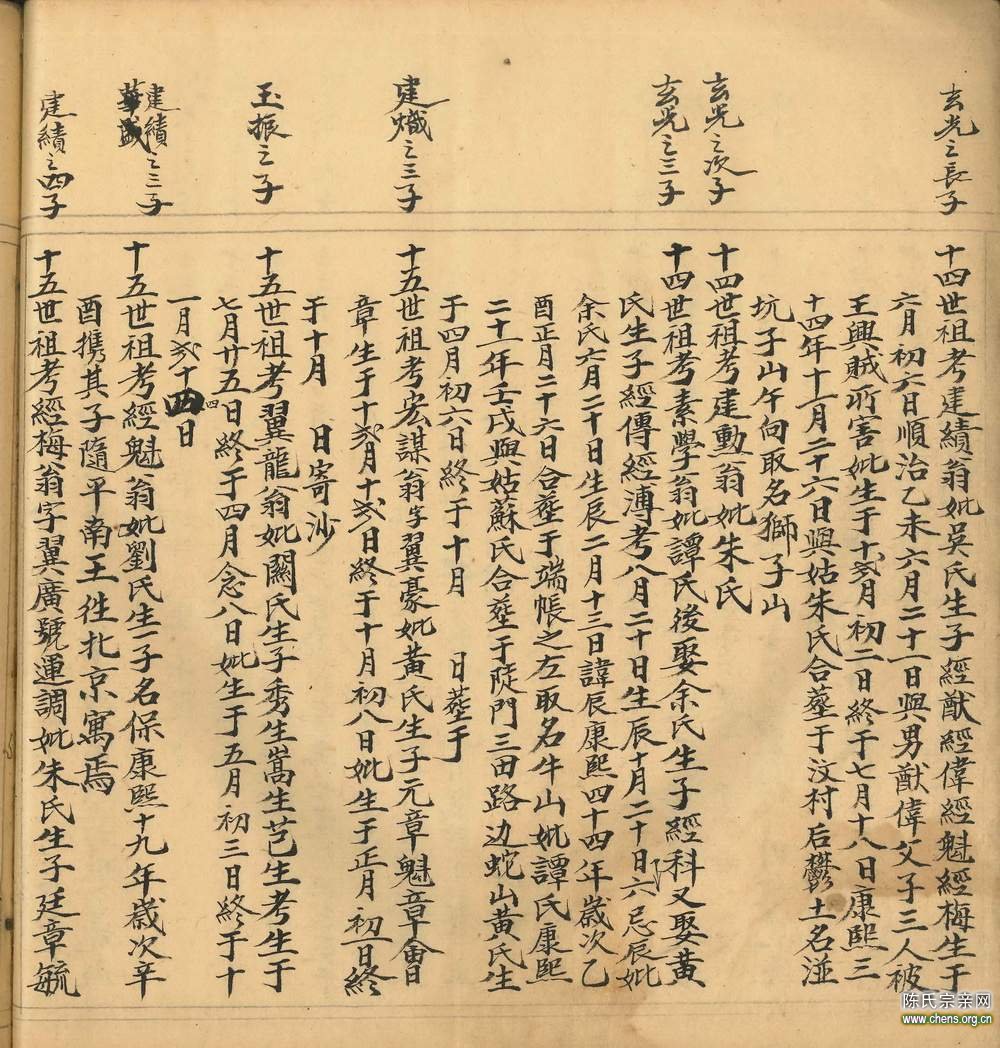 玄光之長子
十四世祖考建績翁妣吳氏生子經猷經偉經魁經梅生于
六月初六日順治乙未六月二十一日與男猷偉父子三人被
王興賊所害妣生于十弍月初二日終于七月十八日康熙三
十四年十一月二十六日與姑朱氏合塟于汶村后欎土名湴
坑子山午向取名獅子山
玄光之次子
十四世祖考建勳翁妣朱氏
玄光之三子
十四世祖考素學翁妣譚氏後娶余氏生子經科又娶黃
氏生子經傳經溥考八月二十日生辰十月二十日六忌辰妣
余氏六月二十日生辰二月十三日諱辰康熙四十四年歲次乙
酉正月二十六日合塟于端帳之左取名牛山妣譚氏康熙
二十一年壬戌與姑蘇氏合塟于陡門三田路边蛇山黃氏生
于四月初六日終于十月 日塟于
建熾之三子
十五世祖考宏謀翁字翼豪妣黃氏生子元章魁章會
章生于十弍月十弍日終于十月初八日妣生于正月初一日終
于十月 日寄沙
玉振之子
十五世祖考翼龍翁妣關氏生子秀生嵩生芑生考生于
七月廿五日終于四月念八日妣生于五月初三日終于十
一月弍十四日
四
建績之三子
華盛
十五世祖考經魁翁妣劉氏生一子名保康熙十九年歲次辛
酉携其子隨平南王徃北京寓焉
建績之四子
十五世祖考經梅翁字翼廣號運調妣朱氏生子廷章毓
陈氏宗亲网
www.chens.org.cn